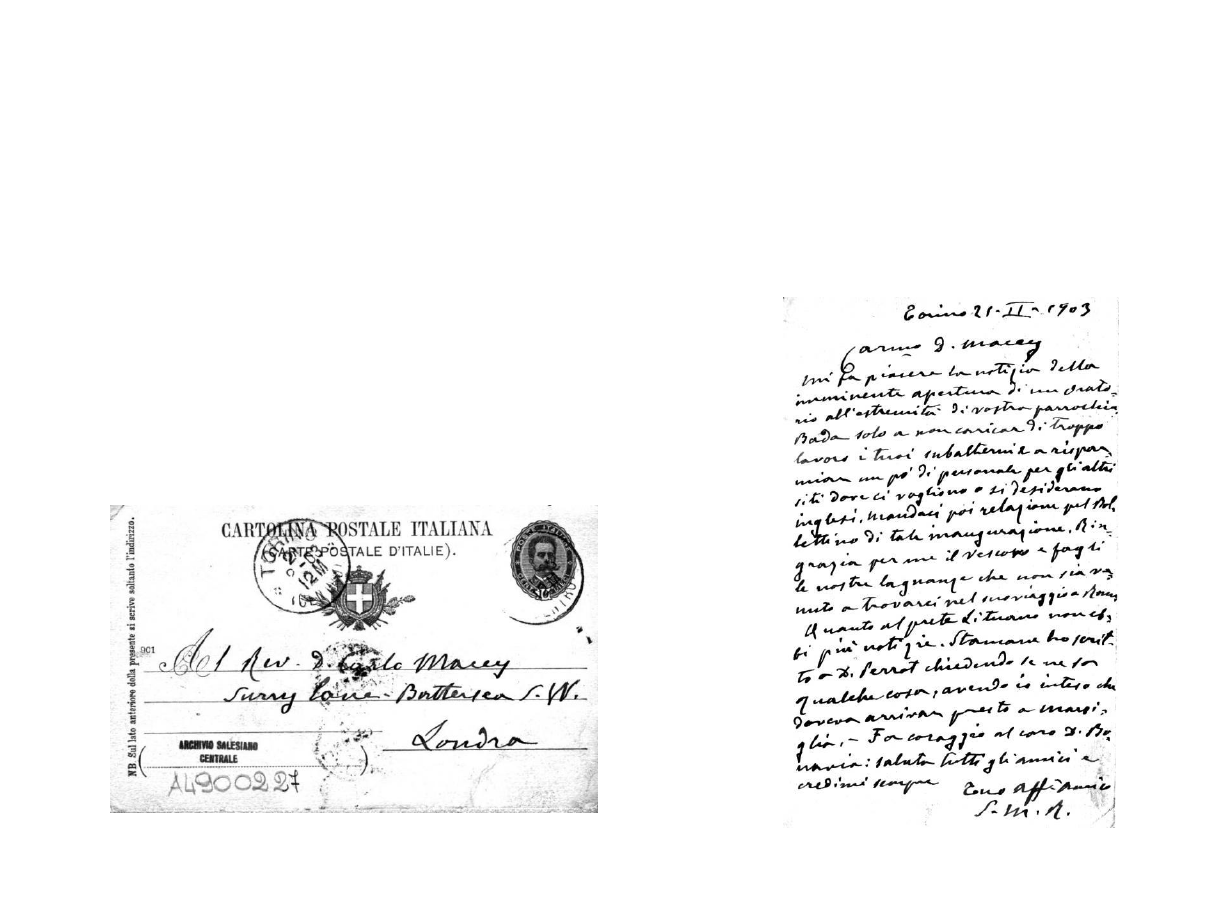 CARTOLINA POSTALE ITALIANA
(CARTE POSTALE D'ITALIE).
NB. Sul lato anteriore della presente si scrive soltanto l'indirizzo.
TORINO
12 M
901
Al Rev. D. Carlo Macey
Surry Lane - Battersea S. W.
Londra
ARCHIVIO SALESIANO
CENTRALE
A4900227
Torino 21-II-1903
Carmo D. Macey
Mi fa piacere la notizia della
imminente apertura di un Orato-
rio all'estremità di vostra parrocchia
Bada solo a non caricar di troppo
lavoro i tuoi subalterni e a rispar-
miar un po' di personale per gli altri
siti dove ci vogliono o si desiderano
inglesi. Mandaci poi relazione pel Bol-
lettino di tale inaugurazione. Rin-
grazia per me il Vescovo e fagli
le nostre lagnanze che non sia ve-
nuto a trovarci nel suo viaggio a Roma
Quanto al prete Lituano non eb-
bi più notizie. Stamane ho scrit-
to a D. Perrot chiedendo se ne sa
qualche cosa, avendo io inteso che
doveva arrivar presto a Marsi-
glia. - Fa coraggio al caro D. Bo-
navia: saluta tutti gli amici e
credimi sempre
Tuo Aff Amico
S. M. R.